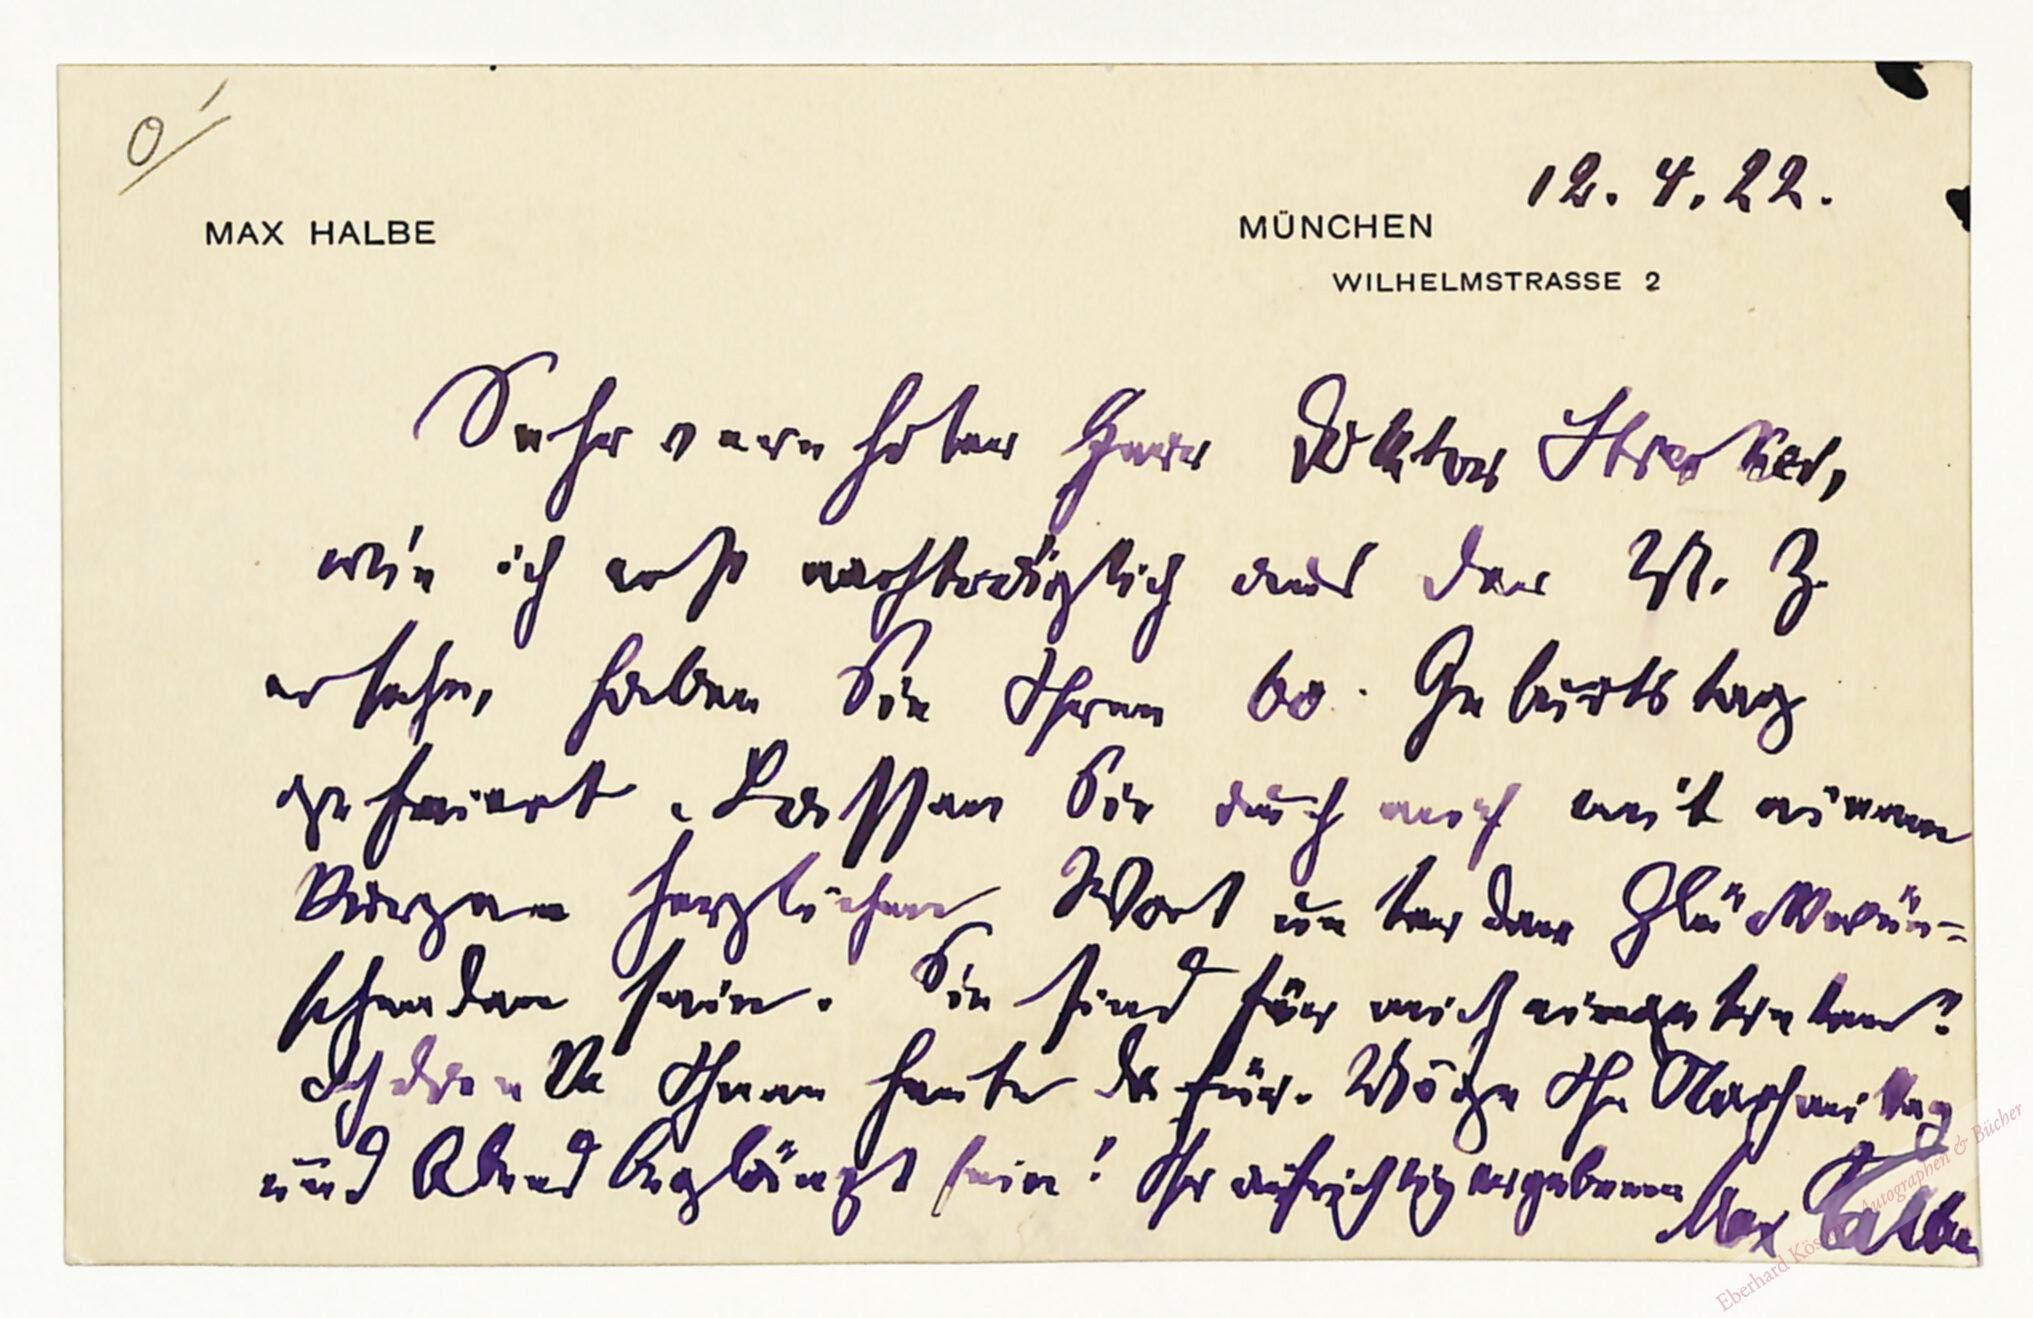 12.4.22.
MAX HALBE
MÜNCHEN
WILHELMSTRASSE 2
Sehr verehrter Herr Doktor Strecker,
wie ich erst nachträglich aus der M. Z.
ersehe, haben Sie Ihren 60. Geburtstag
gefeiert. Lassen Sie auch mich mit einem
kurzen herzlichen Wort unter den Glückwün-
schenden sein. Sie sind für mich eingetreten?
Ich danke Ihnen heute dafür. Möge Ihr Nachmittag
und Abend beglänzt sein! Ihr aufrichtig ergebener
Max Halbe
Eberhard Köstler Autographen & Bücher